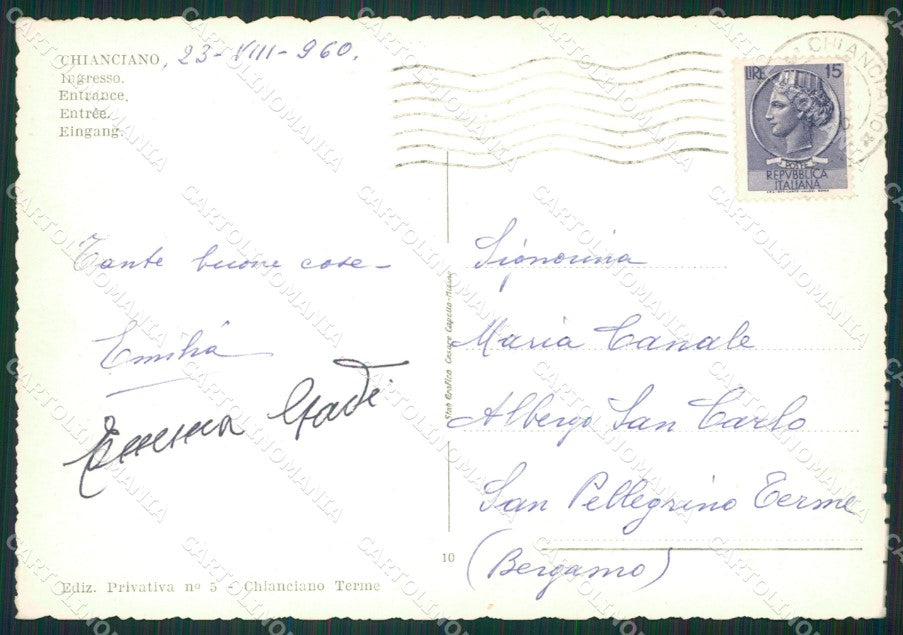 CHIANCIANO, 23-VIII-960.
Ingresso.
Entrance.
Entrée.
Eingang.
CHIANCIANO
LIRE 15
POSTE
REPVBBLICA
ITALIANA
Tante buone cose -
Emilia
Emma
Signorina
Maria Canale
Albergo San Carlo
San Pellegrino Terme
(Bergamo)
Stab Grafico Cesare Capello-Milano
10
Ediz. Privativa nº 5 - Chianciano Terme
CARTOLINOMANIA